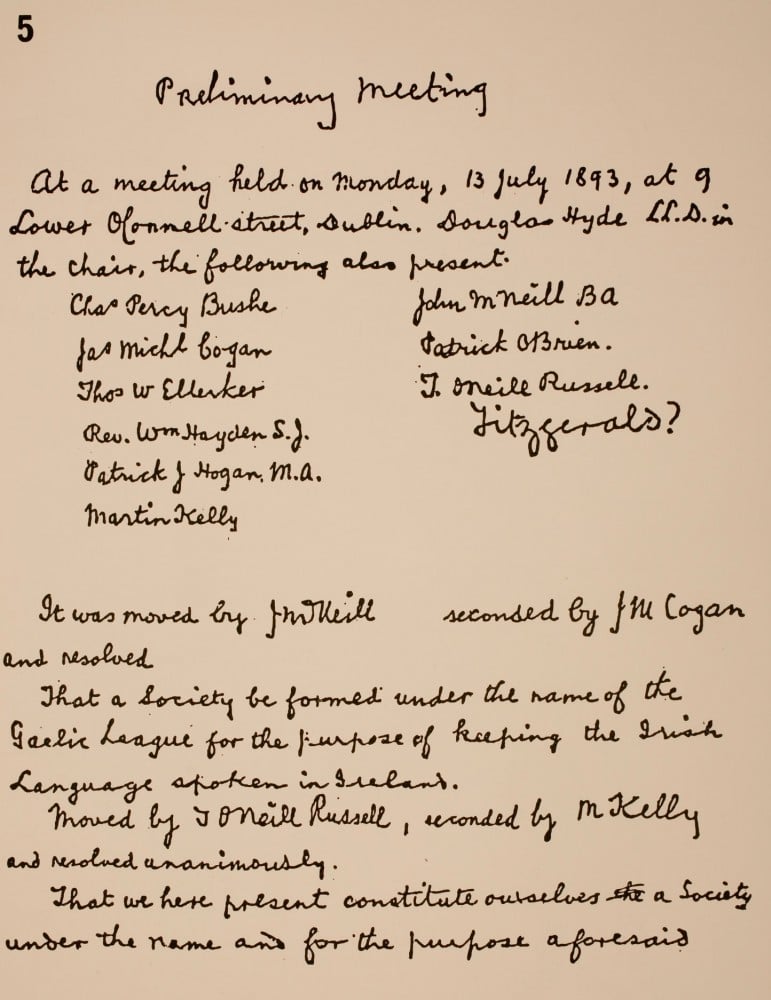 5
Preliminary Meeting
At a meeting held on Monday, 13 July 1893, at 9
Lower O'Connell street, Dublin. Douglas Hyde LL.D. in
the chair, the following also present.
Chas Percy Bushe
Jas Michl Cogan
Thos W Ellerker
Rev. Wm Hayden S.J.
Patrick J Hogan, M.A.
Martin Kelly
John McNeill BA
Patrick O'Brien.
T. O'Neill Russell.
Fitzgerald?
It was moved by J McNeill seconded by J M Cogan
and resolved
That a Society be formed under the name of the
Gaelic League for the purpose of keeping the Irish
Language spoken in Ireland.
Moved by T O'Neill Russell, seconded by M Kelly
and resolved unanimously.
That we here present constitute ourselves the a Society
under the name and for the purpose aforesaid